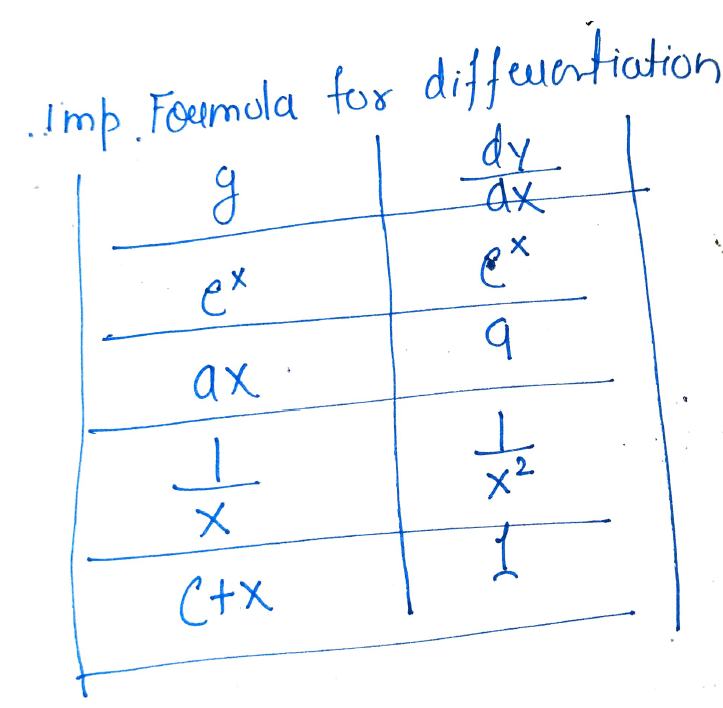 Imp. Formula for differentiation
y dy/dx
e^x e^x
ax a
1/x 1/x^2
C+x 1